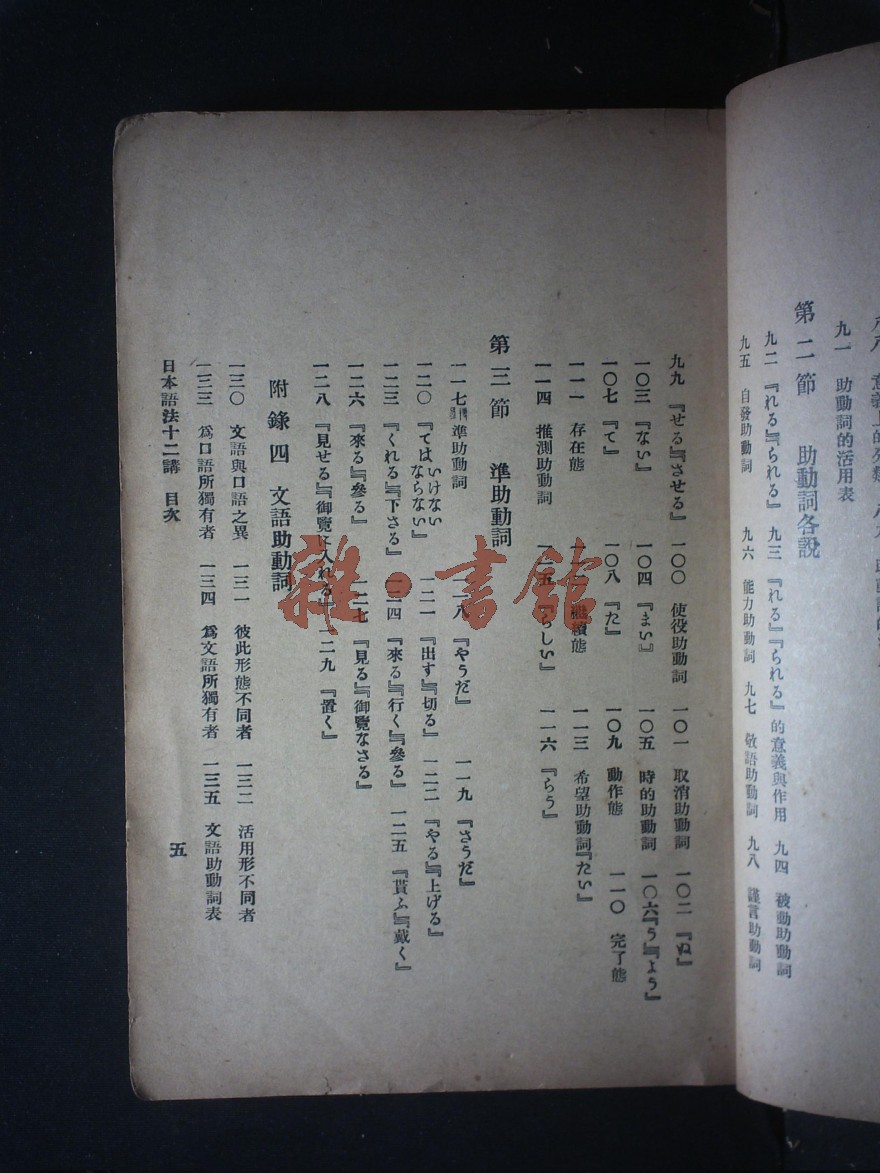 九一　助動詞的活用表
第二節　助動詞各說
九二　『れる』『られる』　九三　『れる』『られる』的意義與作用　九四　被動助動詞
九五　自發助動詞　九六　能力助動詞　九七　敬語助動詞　九八　謹言助動詞
九九　『せる』『させる』　一〇〇　使役助動詞　一〇一　取消助動詞　一〇二　『ぬ』
一〇三　『ない』　一〇四　『まい』　一〇五　時的助動詞　一〇六『う』『よう』
一〇七　『て』　一〇八　『た』　一〇九　動作態　一一〇　完了態
一一一　存在態　一一二　繼續態　一一三　希望助動詞『たい』
一一四　推測助動詞　一一五　『らしい』　一一六　『らう』
第三節　準助動詞
一一七　準助動詞　一一八　『やうだ』　一一九　『さうだ』
一二〇　『てはいけないならない』　一二一　『出す』『切る』　一二二　『やる』『上げる』
一二三　『くれる』『下さる』　一二四　『來る』『行く』『參る』　一二五　『貰ふ』『戴く』
一二六　『來る』『參る』　一二七　『見る』『御覽なさる』
一二八　『見せる』『御覽に入れる』　一二九　『置く』
附錄四　文語助動詞
一三〇　文語與口語之異　一三一　彼此形態不同者　一三二　活用形不同者
一三三　爲口語所獨有者　一三四　爲文語所獨有者　一三五　文語助動詞表
日本語法十二講　目次
五
雜·書館